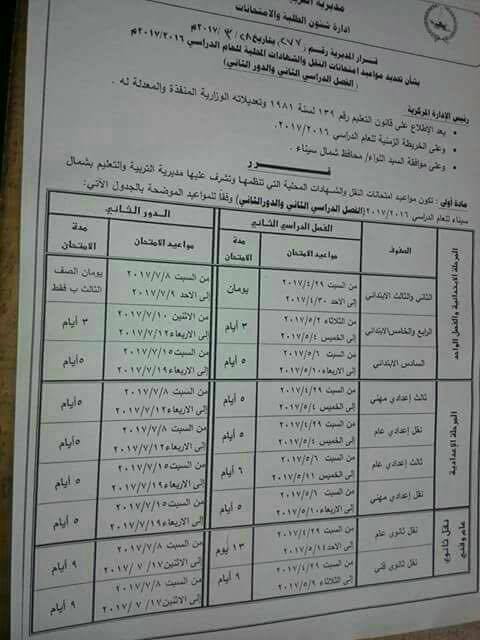 مديرية التربية
ادارة شئون الطلبة والامتحانات
قرار المديرية رقم ( ٢٧٧ ) بتاريخ ٢٨ / ٣ / ٢٠١٧م
بشأن تحديد مواعيد امتحانات النقل والشهادات المحلية للعام الدراسي ٢٠١٧/٢٠١٦م
( الفصل الدراسي الثاني والدور الثاني )
رئيس الادارة المركزية
• بعد الإطلاع على قانون التعليم رقم ١٣٩ لسنة ١٩٨١ وتعديلاته الوزارية المنفذة والمعدلة له .
• وعلى الخريطة الزمنية للعام الدراسي ٢٠١٧/٢٠١٦
• وعلى موافقة السيد اللواء/ محافظ شمال سيناء .
قـــــرر
مادة أولى : تكون مواعيد امتحانات النقل والشهادات المحلية التي تنظمها وتشرف عليها مديرية التربية والتعليم بشمال
سيناء للعام الدراسي ٢٠١٧/٢٠١٦ (الفصل الدراسي الثاني والدور الثاني) وفقا للمواعيد الموضحة بالجدول الآتي:
الصفوف
الفصل الدراسي الثاني
الدور الثاني
مواعيد الامتحان
مدة الامتحان
مواعيد الامتحان
مدة الامتحان
المرحلة الابتدائية والفصل الواحد
الثاني والثالث الابتدائي
من السبت ٢٠١٧/٤/٢٩
إلى الاحد ٢٠١٧/٤/٣٠
يومان
من السبت ٢٠١٧/٧/٨
إلى الاحد ٢٠١٧/٧/٩
يومان الصف
الثالث ب فقط
الرابع والخامس الابتدائي
من الثلاثاء ٢٠١٧/٥/٢
إلى الخميس ٢٠١٧/٥/٤
٣ أيام
من الاثنين ٢٠١٧/٧/١٠
إلى الاربعاء ٢٠١٧/٧/١٢
٣ أيام
السادس الابتدائي
من السبت ٢٠١٧/٥/٦
إلى الاربعاء ٢٠١٧/٥/١٠
٥ أيام
من السبت ٢٠١٧/٧/١٥
إلى الاربعاء ٢٠١٧/٧/١٩
٥ أيام
المرحلة الإعدادية
ثالث إعدادي مهني
من السبت ٢٠١٧/٤/٢٩
إلى الخميس ٢٠١٧/٥/٤
٥ أيام
من السبت ٢٠١٧/٧/٨
إلى الاربعاء ٢٠١٧/٧/١٢
٥ أيام
نقل إعدادي عام
من السبت ٢٠١٧/٤/٢٩
إلى الخميس ٢٠١٧/٥/٤
٥ أيام
من السبت ٢٠١٧/٧/٨
إلى الاربعاء ٢٠١٧/٧/١٢
٥ أيام
ثالث إعدادي عام
من السبت ٢٠١٧/٥/٦
إلى الخميس ٢٠١٧/٥/١١
٦ أيام
من السبت ٢٠١٧/٧/١٥
إلى الاربعاء ٢٠١٧/٧/١٩
٥ أيام
نقل إعدادي مهني
من السبت ٢٠١٧/٥/٦
إلى الاربعاء ٢٠١٧/٥/١٠
٥ أيام
من السبت ٢٠١٧/٧/١٥
إلى الاربعاء ٢٠١٧/٧/١٩
٥ أيام
نقل ثانوي
عام وفني
نقل ثانوي عام
من السبت ٢٠١٧/٤/٢٩
إلى الاحد ٢٠١٧/٥/١٤
١٣ يوم
من السبت ٢٠١٧/٧/٨
إلى الاثنين ٢٠١٧/٧/١٧
٩ أيام
نقل ثانوى فنى
من السبت ٢٠١٧/٤/٢٩
إلى الثلاثاء ٢٠١٧/٥/٩
٩ أيام
من السبت ٢٠١٧/٧/٨
إلى الاثنين ١٧/ ٧ / ٢٠١٧
٩ أيام